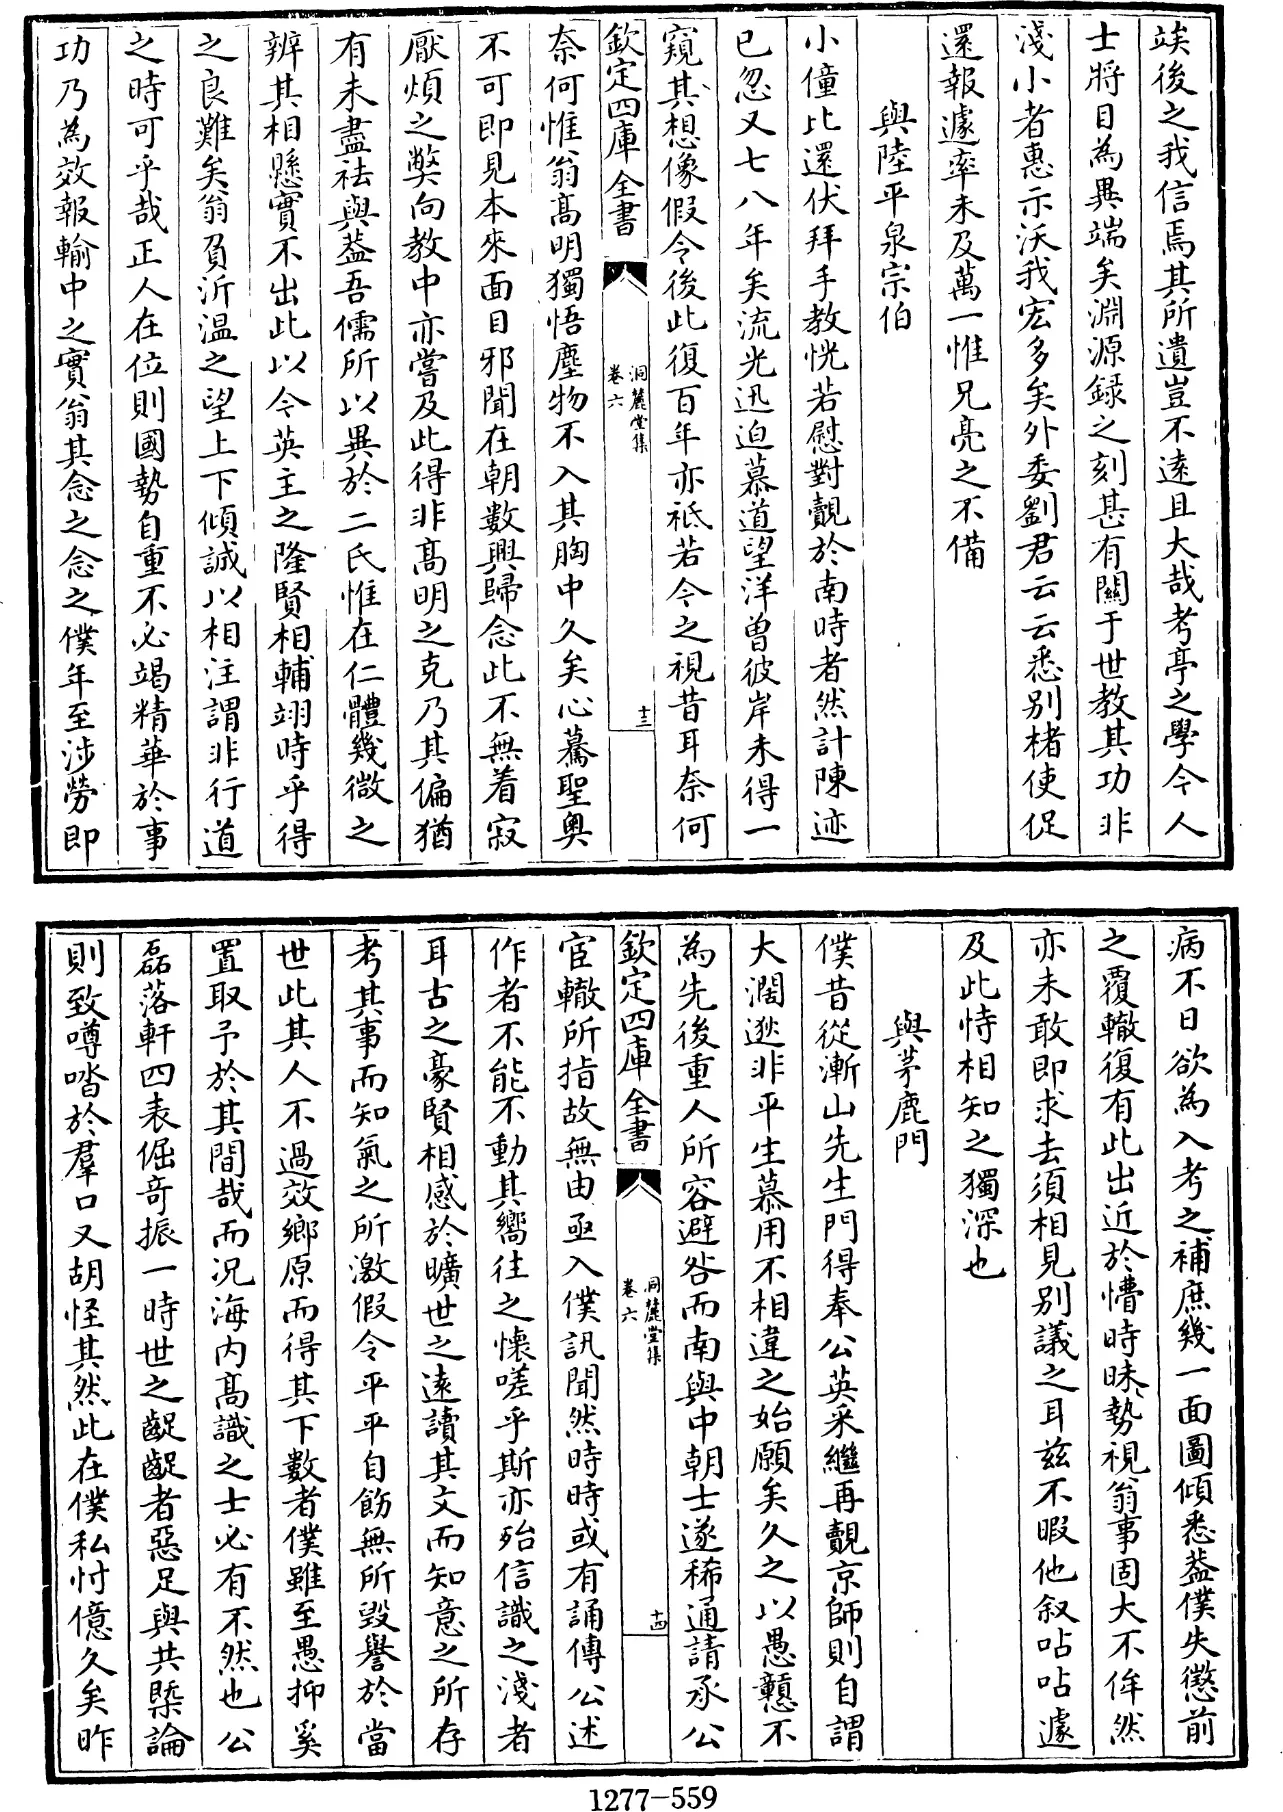 竢後之我信焉其所遺豈不逺且大哉考亭之學今人
士將目為異端矣淵源録之刻甚有關于世教其功非
淺小者惠示沃我宏多矣外委劉君云云悉别楮使促
還報遽率未及萬一惟兄亮之不備
與陸平泉宗伯
小僮比還伏拜手教恍若慰對覿於南時者然計陳迹
已忽又七八年矣流光迅迫慕道望洋曽彼岸未得一
窺其想像假令後此復百年亦祗若今之視昔耳奈何
欽定四庫全書
洞麓堂集
卷六
十三
奈何惟翁髙明獨悟塵物不入其胸中久矣心騖聖奥
不可即見本來面目邪聞在朝數興歸念此不無着寂
厭煩之獘向教中亦嘗及此得非髙明之克乃其偏猶
有未盡祛與葢吾儒所以異於二氏惟在仁體幾微之
辨其相懸實不出此以今英主之隆賢相輔翊時乎得
之良難矣翁負沂温之望上下傾誠以相注謂非行道
之時可乎哉正人在位則國勢自重不必竭精華於事
功乃為效報輸中之實翁其念之念之僕年至涉勞即
病不日欲為入考之補庶幾一面圖傾悉葢僕失懲前
之覆轍復有此出近於懵時昧勢視翁事固大不侔然
亦未敢即求去須相見别議之耳兹不暇他叙呫呫遽
及此恃相知之獨深也
與茅鹿門
僕昔從漸山先生門得奉公英采繼再覿京師則自謂
大濶逖非平生慕用不相違之始願矣久之以愚戇不
為先後重人所容避咎而南與中朝士遂稀通請承公
欽定四庫全書
洞麓堂集
卷六
十四
宦轍所指故無由亟入僕訊聞然時時或有誦傳公述
作者不能不動其嚮往之懐嗟乎斯亦殆信識之淺者
耳古之豪賢相感於曠世之逺讀其文而知意之所存
考其事而知氣之所激假令平平自飭無所毀譽於當
世此其人不過效鄉原而得其下數者僕雖至愚抑奚
置取予於其間哉而况海内髙識之士必有不然也公
磊落軒四表倔奇振一時世之齪齪者惡足與共槩論
則致噂喒於羣口又胡怪其然此在僕私忖億久矣昨
1277-559